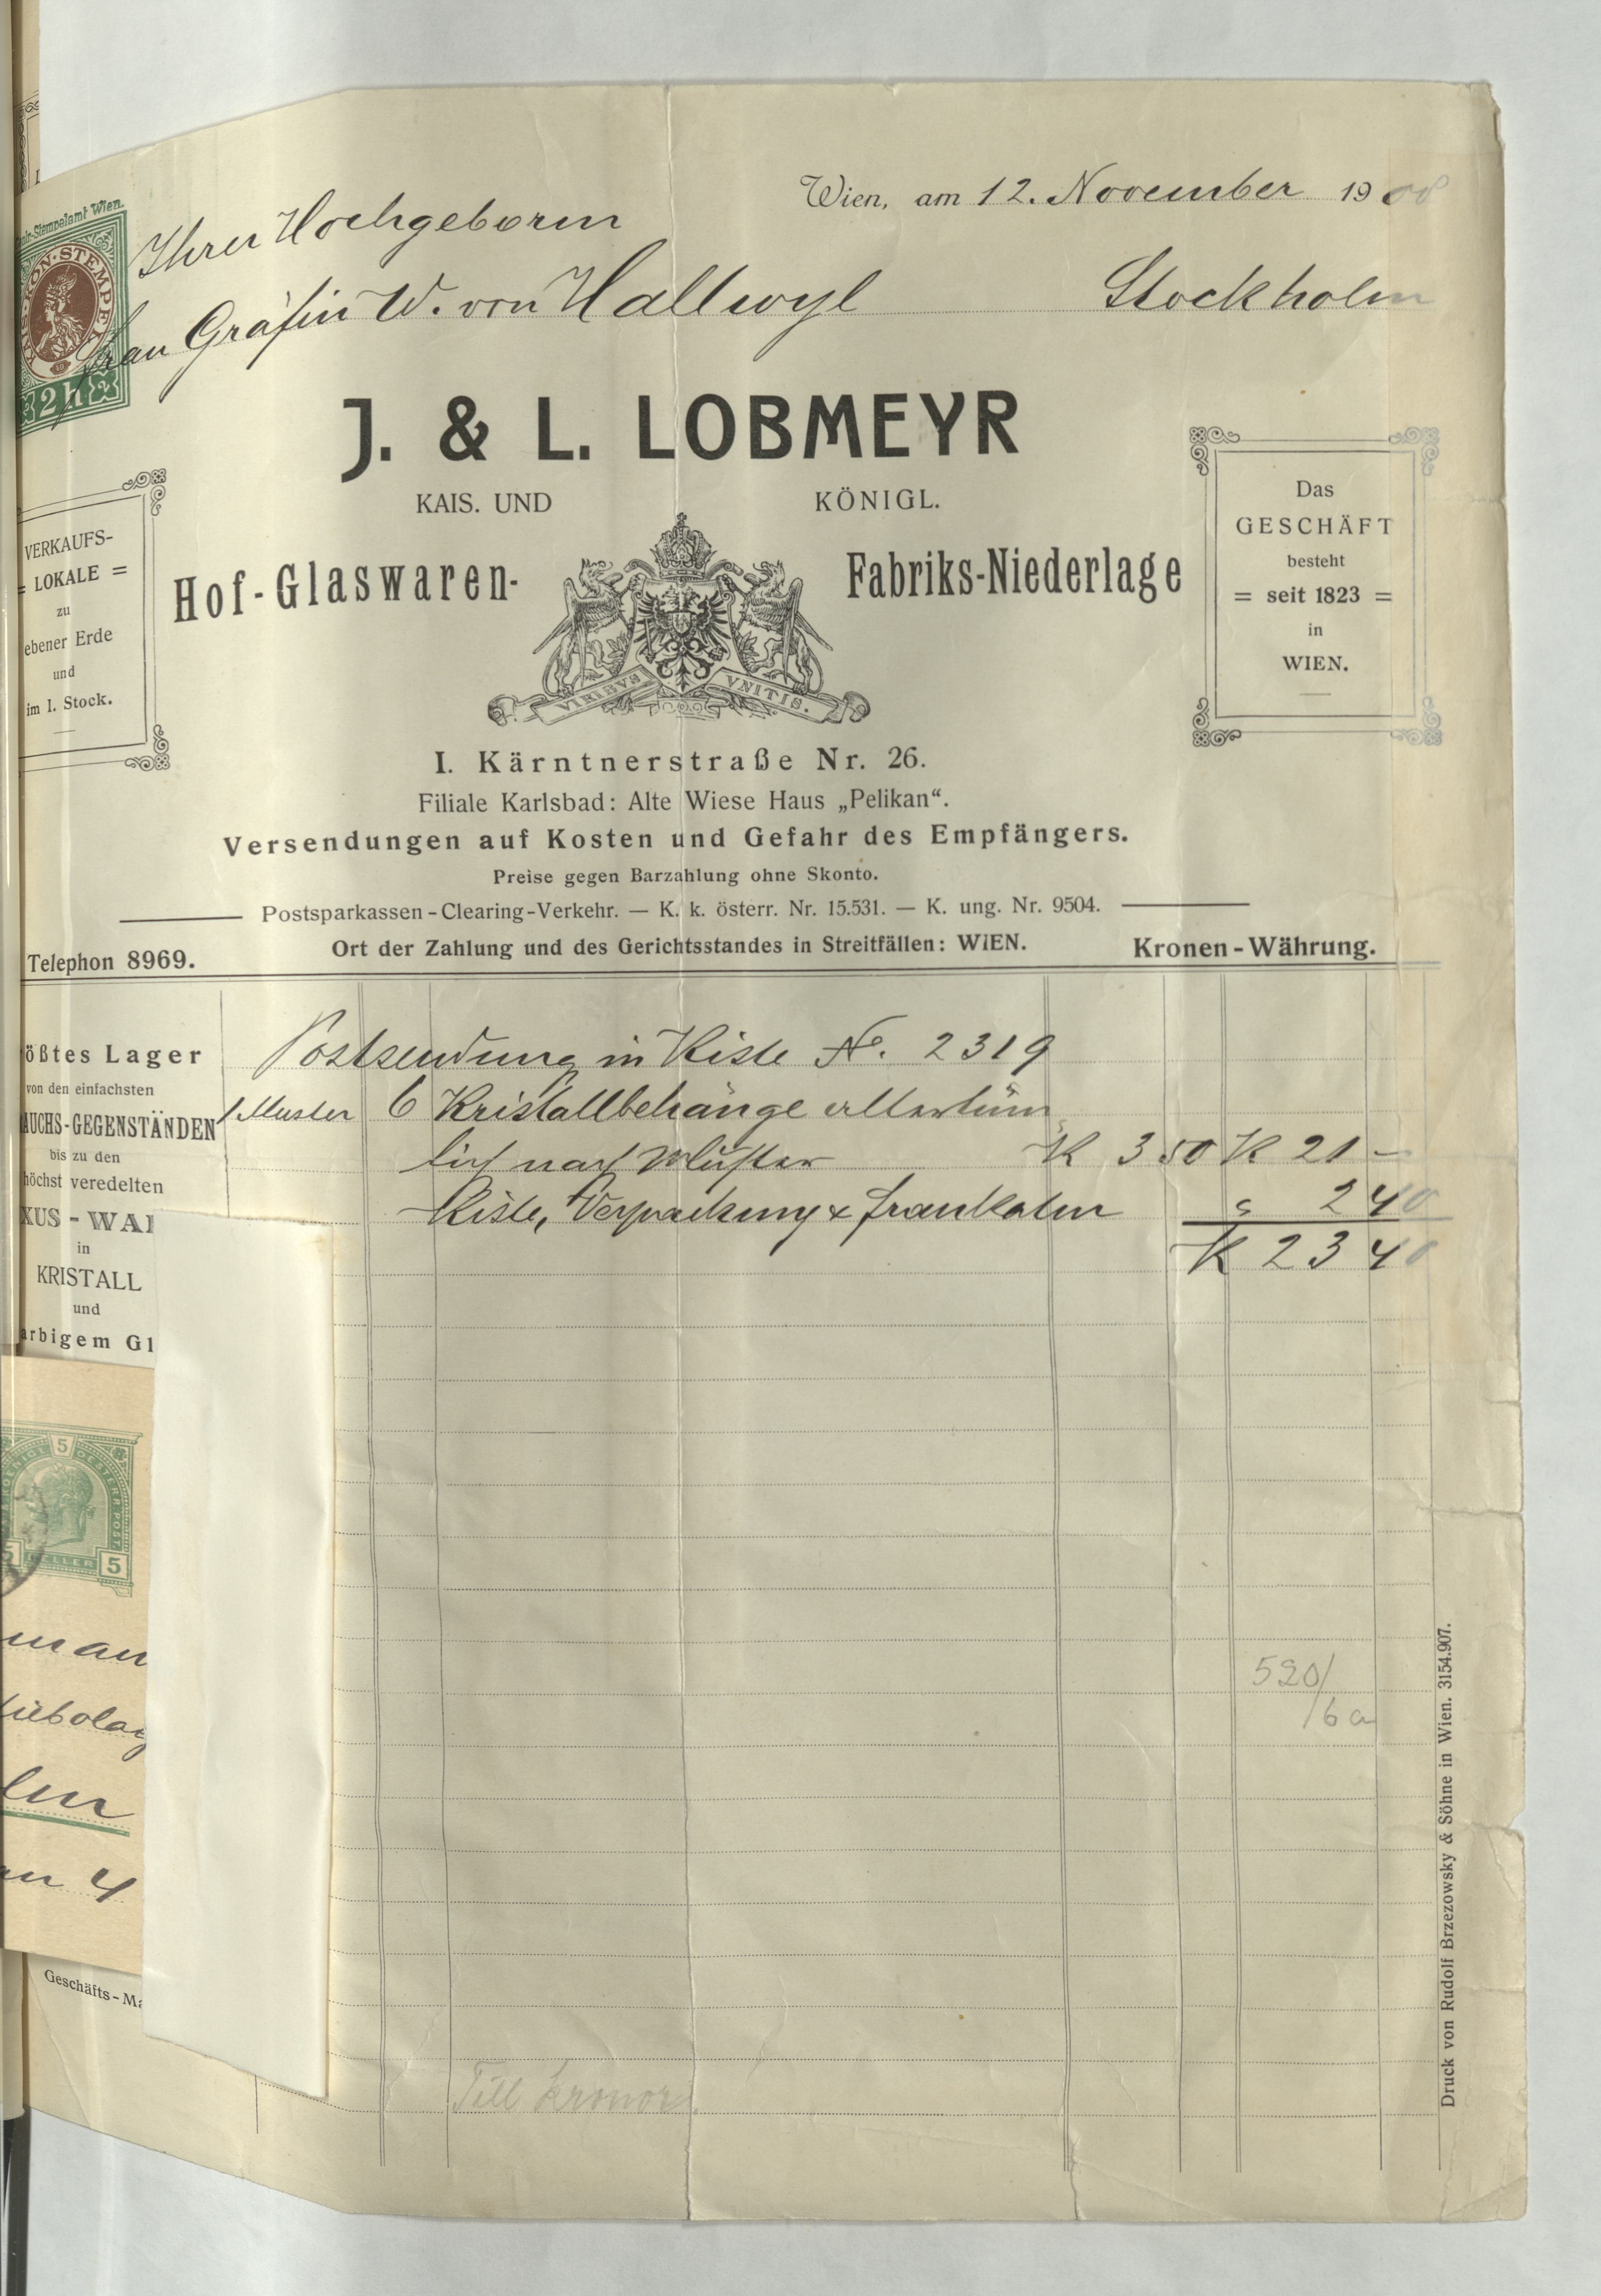 Wien, am 12. November 1908
Ihrer Hochgeboren
Frau Gräfin W. von Hallwyl Stockholm
KAIS. KÖN. STEMPEL
2 h
J. & L. LOBMEYR
KAIS. UND KÖNIGL.
Hof-Glaswaren- Fabriks-Niederlage
VIRIBVS VNITIS.
VERKAUFS-
= LOKALE =
zu
ebener Erde
und
im I. Stock.
Das
GESCHÄFT
besteht
= seit 1823 =
in
WIEN.
I. Kärntnerstraße Nr. 26.
Filiale Karlsbad: Alte Wiese Haus „Pelikan“.
Versendungen auf Kosten und Gefahr des Empfängers.
Preise gegen Barzahlung ohne Skonto.
Postsparkassen-Clearing-Verkehr. — K. k. österr. Nr. 15.531. — K. ung. Nr. 9504.
Telephon 8969. Ort der Zahlung und des Gerichtsstandes in Streitfällen: WIEN. Kronen-Währung.
ößtes Lager
von den einfachsten
AUCHS-GEGENSTÄNDEN
bis zu den
höchst veredelten
XUS-WAR
in
KRISTALL
und
arbigem Gl
Postsendung in Kiste No. 2319
1 Muster 6 Kristallbehänge altertüm
lich nach Muster K 3 50 K 21 –
Kiste, Verpackung & frankatur " 2 40
K 23 40
5
5 HELLER 5
man
4
520/
/6a
Geschäfts-Ma
Till kronor
Druck von Rudolf Brzezowsky & Söhne in Wien. 3154.907.